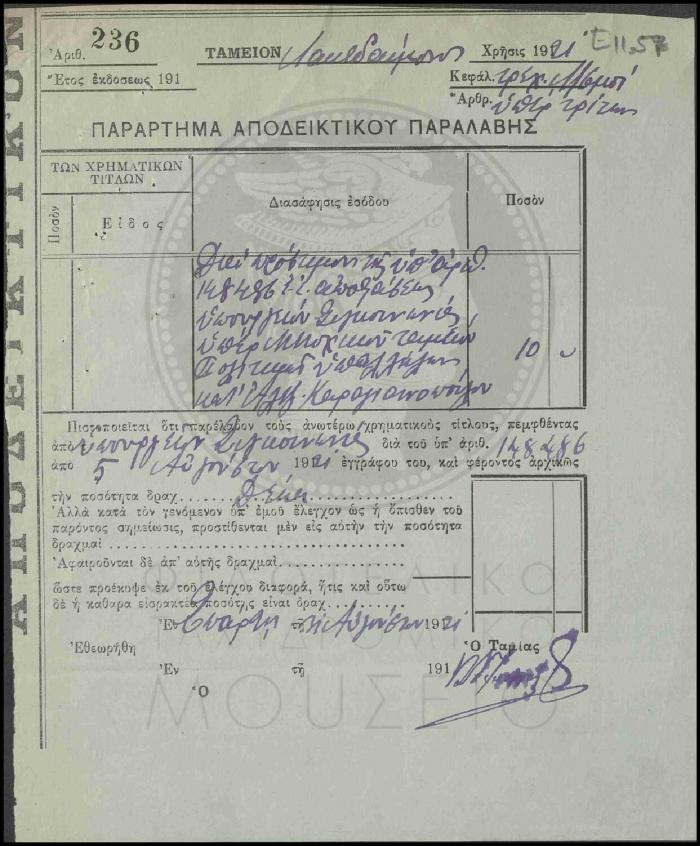 Ε11.57
Ἀριθ. 236 ΤΑΜΕΙΟΝ Λακεδαίμονος Χρῆσις 1921
Ἔτος ἐκδόσεως 191 Κεφάλ. τρεχ.
Ἄρθρ. ὑπὲρ τρίτων
ΠΑΡΑΡΤΗΜΑ ΑΠΟΔΕΙΚΤΙΚΟΥ ΠΑΡΑΛΑΒΗΣ
ΤΩΝ ΧΡΗΜΑΤΙΚΩΝ ΤΙΤΛΩΝ
Ποσὸν
Εἶδος
Διασάφησις ἐσόδου
Ποσὸν
Διὰ πρόστιμον τῆς ὑπ' ἀριθ.
148486 ἀποφάσεως
Ὑπουργείου Συγκοινωνίας
ὑπὲρ Μετοχικοῦ Ταμείου
Πολιτικῶν ὑπαλλήλων
κατ' Ἀλεξ. Καραγιαννοπούλου
10
Πιστοποιεῖται ὅτι παρέλαβον τοὺς ἀνωτέρω χρηματικοὺς τίτλους, πεμφθέντας
ἀπὸ Ὑπουργείου Συγκοινωνίας διὰ τοῦ ὑπ' ἀριθ. 148486
ἀπὸ 5 Αὐγούστου 1921 ἐγγράφου του, καὶ φέροντος ἀρχικῶς
τὴν ποσότητα δραχ. Δέκα
Ἀλλὰ κατὰ τὸν γενόμενον ὑπ' ἐμοῦ ἔλεγχον ὡς ἡ ὄπισθεν τοῦ
παρόντος σημείωσις, προστίθενται μὲν εἰς αὐτὴν τὴν ποσότητα
δραχμαὶ
Ἀφαιροῦνται δὲ ἀπ' αὐτῆς δραχμαὶ
ὥστε προέκυψε ἐκ τοῦ ἐλέγχου διαφορά, ἥτις καὶ οὕτω
δὲ ἡ καθαρα εἰσρακτέα ποσότης εἶναι δραχ.
Ἐν Σπάρτῃ τῇ Αὐγούστου 1921
Ἐθεωρήθη Ὁ Ταμίας
Ἐν τῇ 191
Ὁ
ΑΠΟΔΕΙΚΤΙΚΟΝ
ΦΙΛΟΤΕΛΙΚΟ
ΤΑΧΥΔΡΟΜΙΚΟ
ΜΟΥΣΕΙΟ